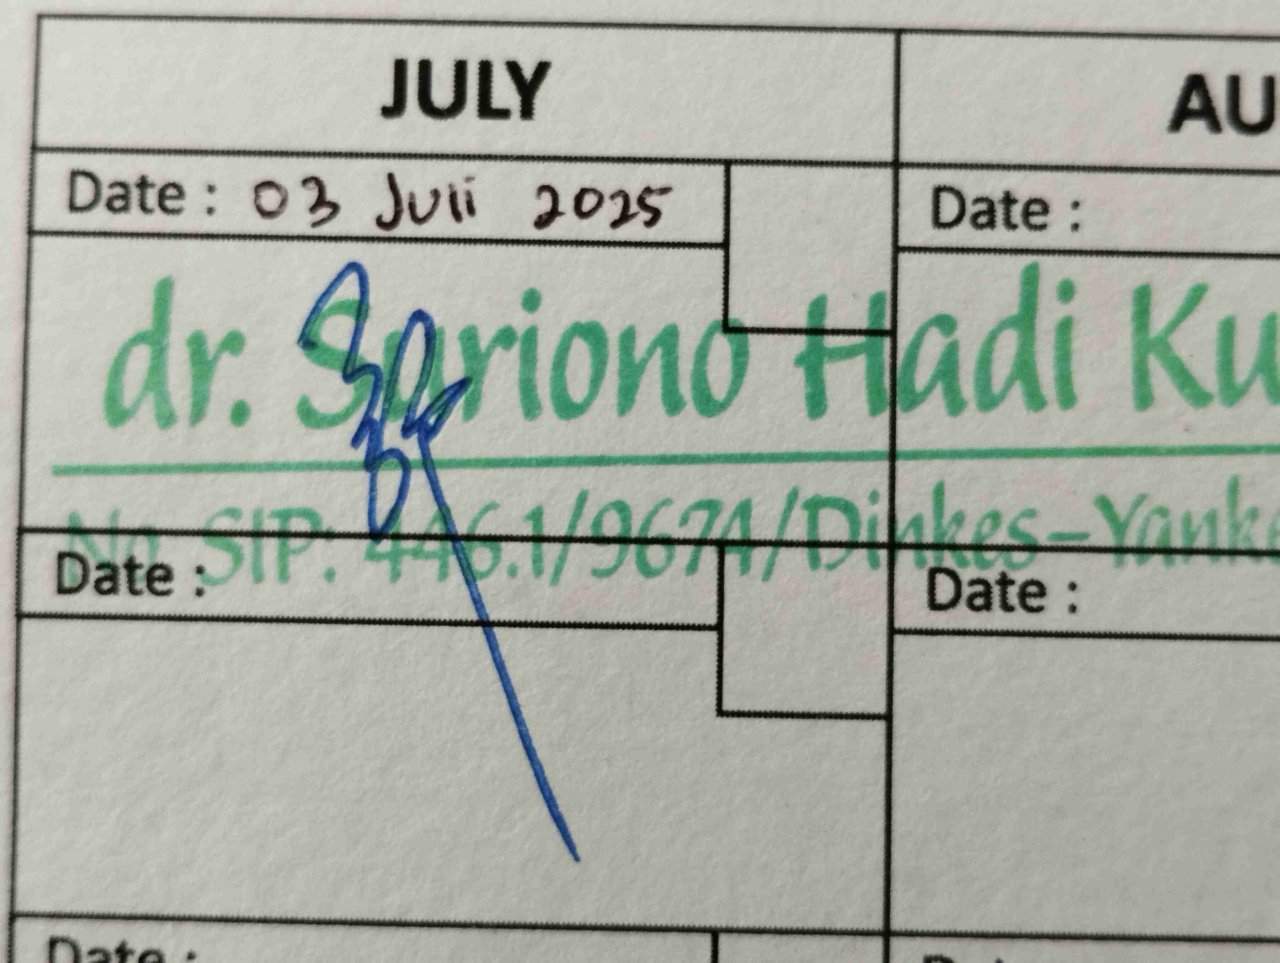 JULY
AU
Date : 03 Juli 2025
Date :
dr. Suriono Hadi Ku
No SIP: 446.1/9674/Dinkes-Yanke
Date :
Date :
Date :